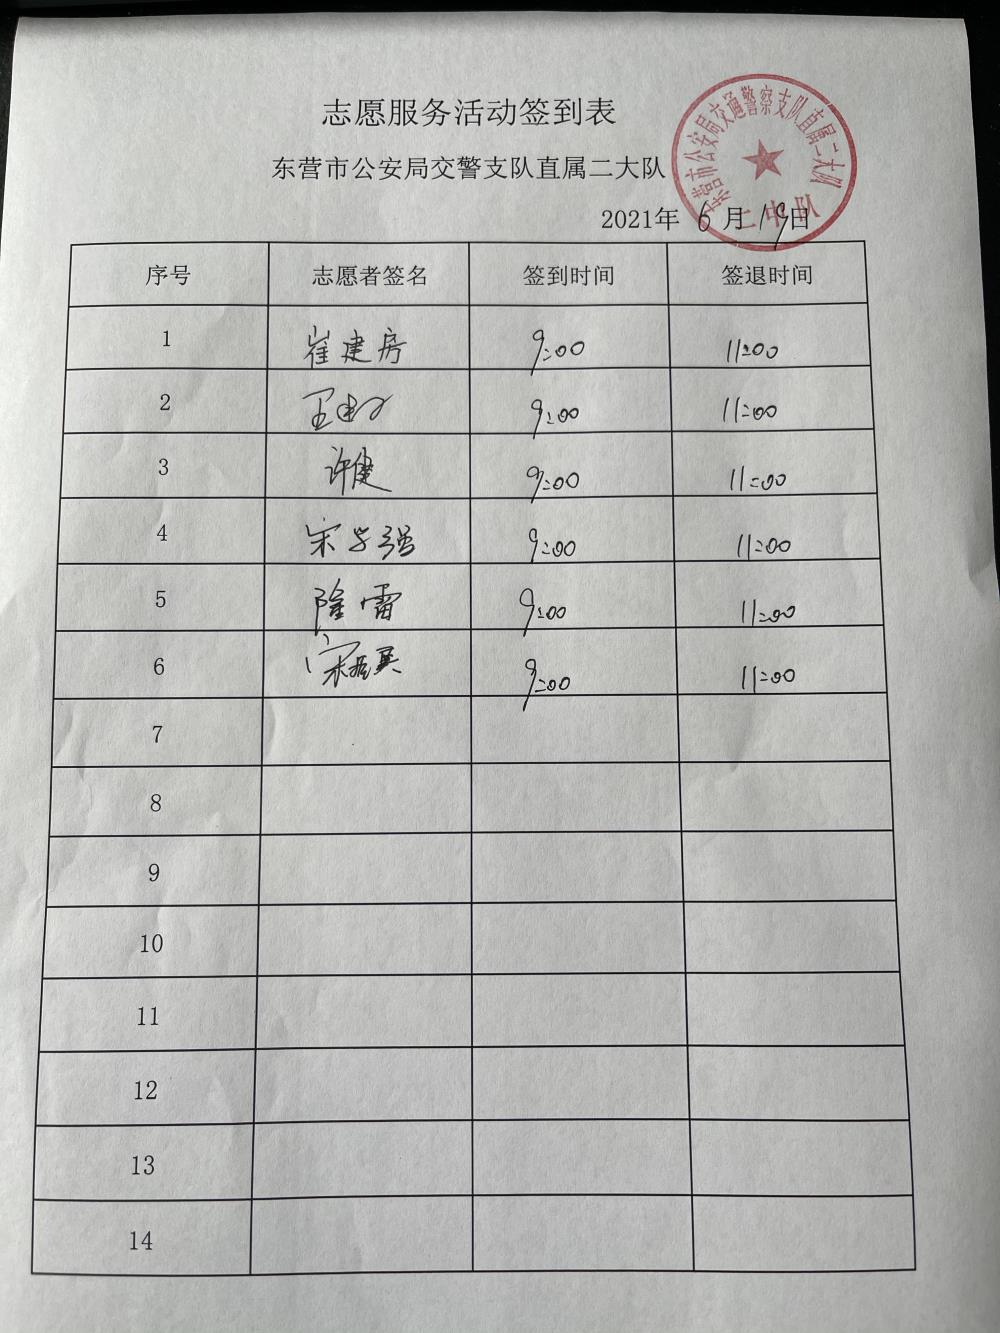 志愿服务活动签到表
东营市公安局交警支队直属二大队
东营市公安局交通警察支队直属二大队
二中队
2021年 6月19日
序号 志愿者签名 签到时间 签退时间
1 崔建房 9:00 11:00
2 9:00 11:00
3 许健 9:00 11:00
4 宋学强 9:00 11:00
5 隆雷 9:00 11:00
6 9:00 11:00
7
8
9
10
11
12
13
14